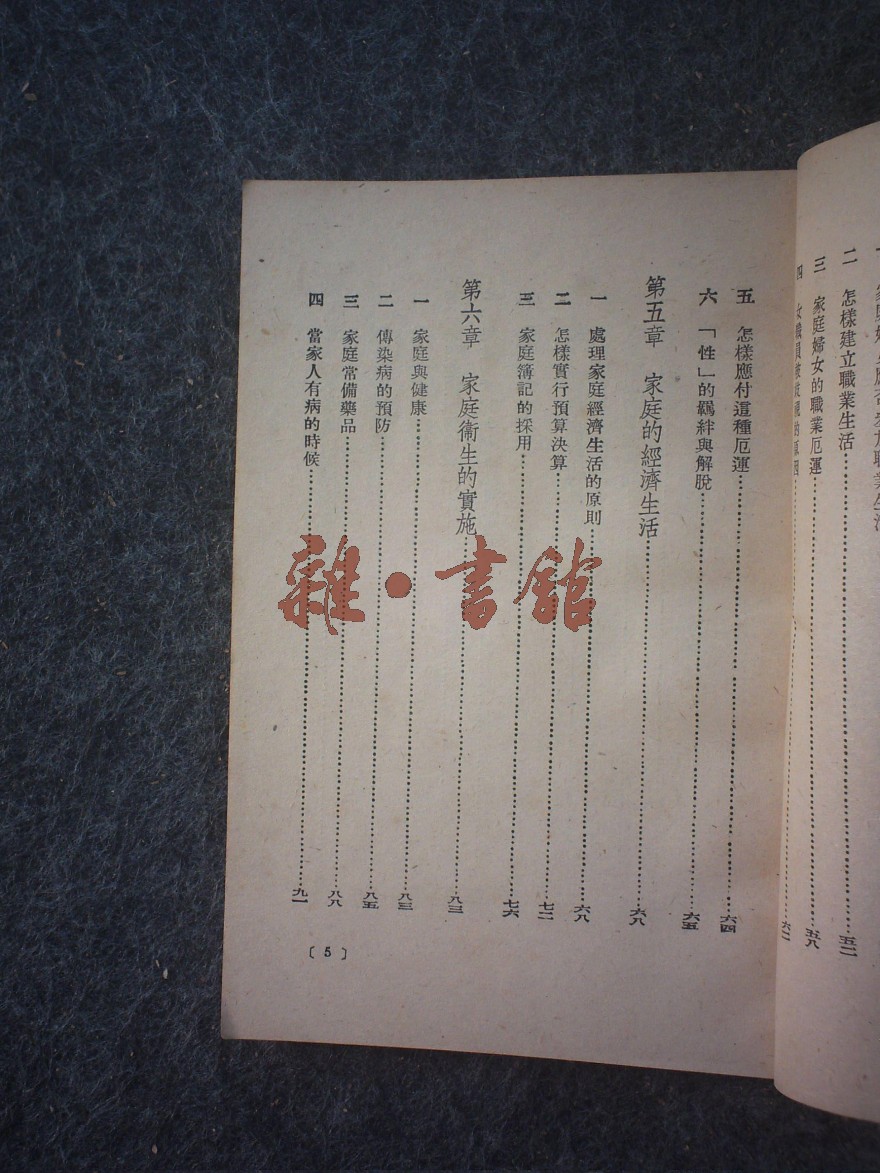 二 怎樣建立職業生活 五二
三 家庭婦女的職業厄運 五八
四 女職員 的原因 六二
五 怎樣應付這種厄運 六四
六 「性」的羈絆與解脫 六五
第五章 家庭的經濟生活 六八
一 處理家庭經濟生活的原則 六八
二 怎樣實行預算決算 七二
三 家庭簿記的採用 七六
第六章 家庭衞生的實施 八三
一 家庭與健康 八三
二 傳染病的預防 八五
三 家庭常備藥品 八八
四 當家人有病的時候 九一
〔5〕
雜·書館